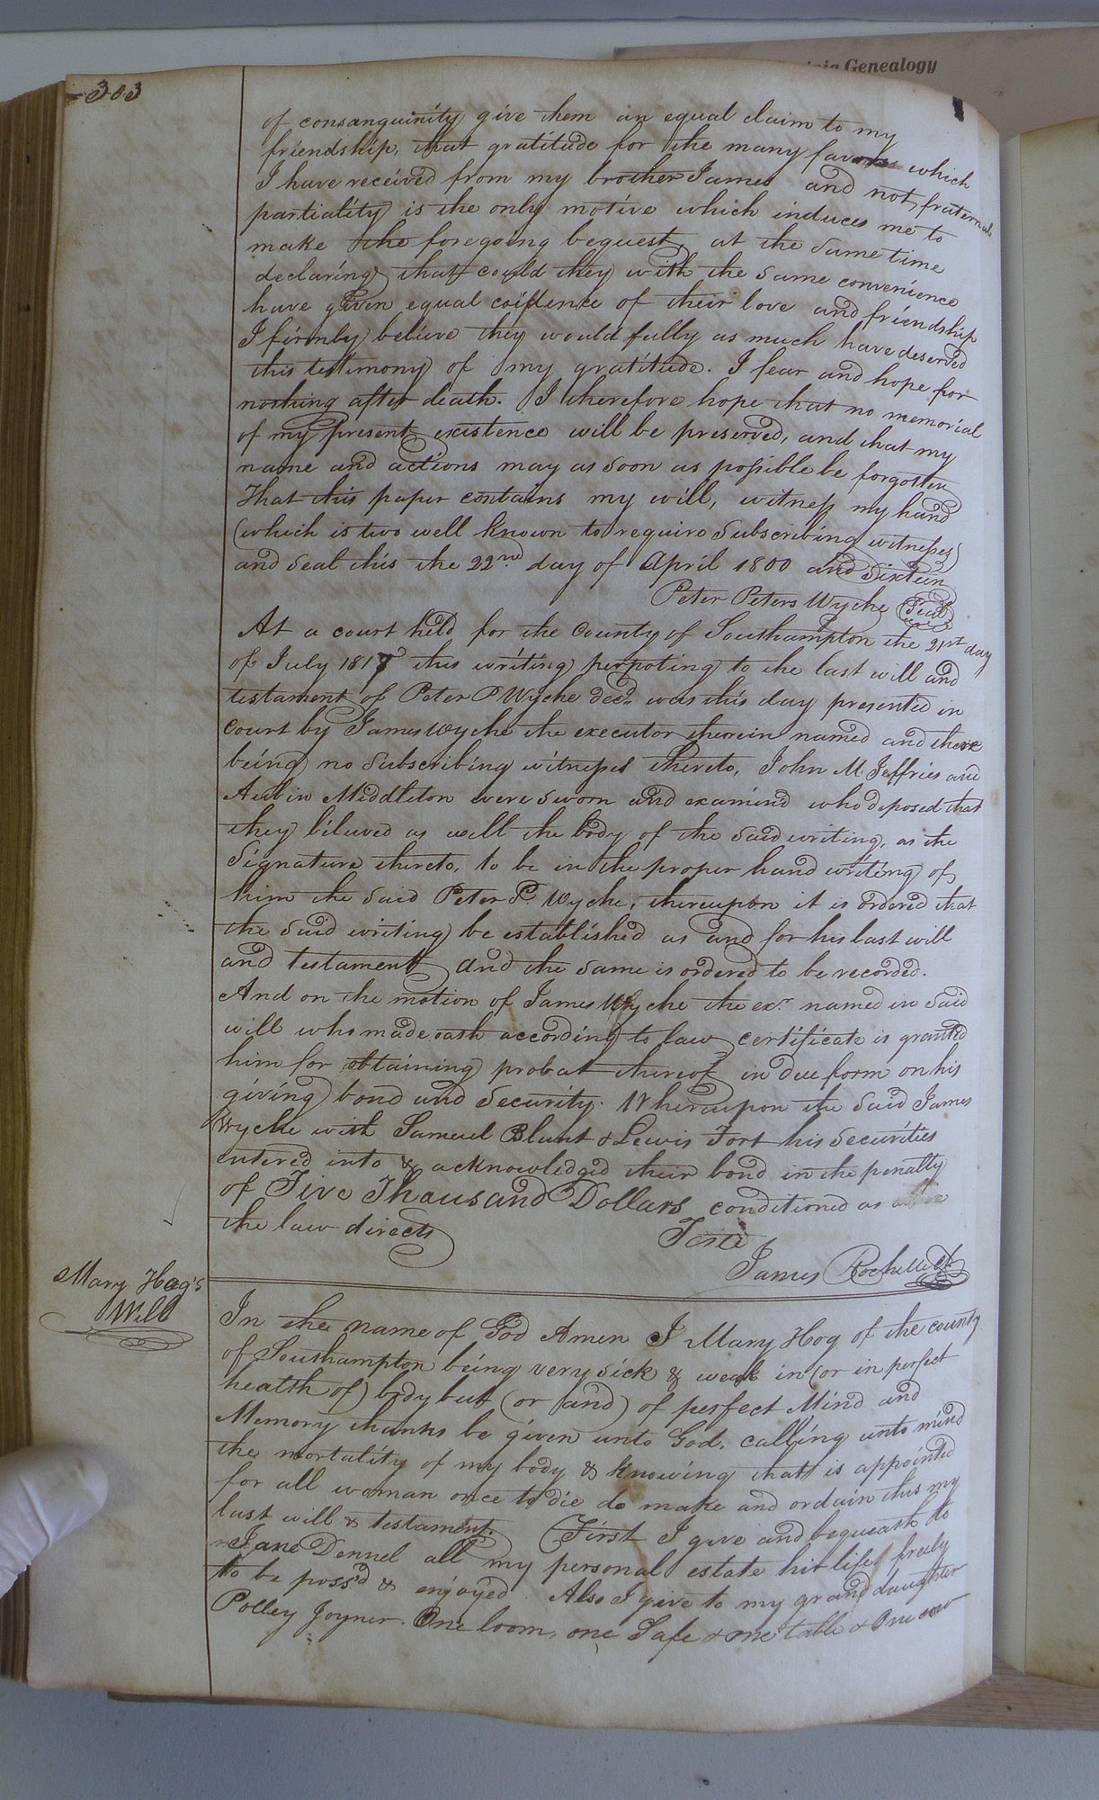 303
Genealogy
of consanguinity give them an equal claim to my
friendship, that gratitude for the many favors which
I have received from my brother James and not fraternal
partiality is the only motive which induces me to
make the foregoing bequest, at the same time
declaring that could they with the same convenience
have given equal evidence of their love and friendship
I firmly believe they would fully as much have deserved
this testimony of my gratitude. I fear and hope for
nothing after death. I therefore hope that no memorial
of my present existence will be preserved, and that my
name and actions may as soon as possible be forgotten
That this paper contains my will, witness my hand
(which is two well known to require Subscribing witnesses)
and Seal this the 22nd day of April 1800 and Sixteen
Peter Peters Wyche Seal
At a court held for the County of Southampton the 21st day
of July 1817 this writing perpoting to the last will and
testament of Peter P Wyche decd. was this day presented in
court by James Wyche the executor therein named and there
being no Subscribing witnesses thereto, John M Jeffries and
Aubin Middleton were sworn and examined who deposed that
they believed as well the body of the said writing, as the
Signature thereto, to be in the proper hand writing of
him the said Peter P. Wyche, thereupon it is ordered that
the said writing be established as and for his last will
and testament and the same is ordered to be recorded.
And on the motion of James Wyche the exr. named in said
will who made oath according to law certificate is granted
him for obtaining probat thereof in due form on his
giving bond and security. Whereupon the said James
Wyche with Samuel Blunt & Lewis Fort his Securities
entered into & acknowledged their bond in the penalty
of Five Thousand Dollars conditioned as
the law directs
Teste
James Rochelle Ck
Mary Hog's
Will
In the name of God Amen I Mary Hog of the county
of Southampton being very sick & weak in (or in perfect
health of) body but (or and) of perfect Mind and
Memory thanks be given unto God. calling unto mind
the mortality of my body & knowing that is appointed
for all woman once to die do make and ordain this my
last will & testament. First I give and bequeath to
Jane Dennel all my personal estate hir life freely
to be possd & enjoyed. Also I give to my grand daughter
Polley Joyner. One loom, one Safe & one table & One cow